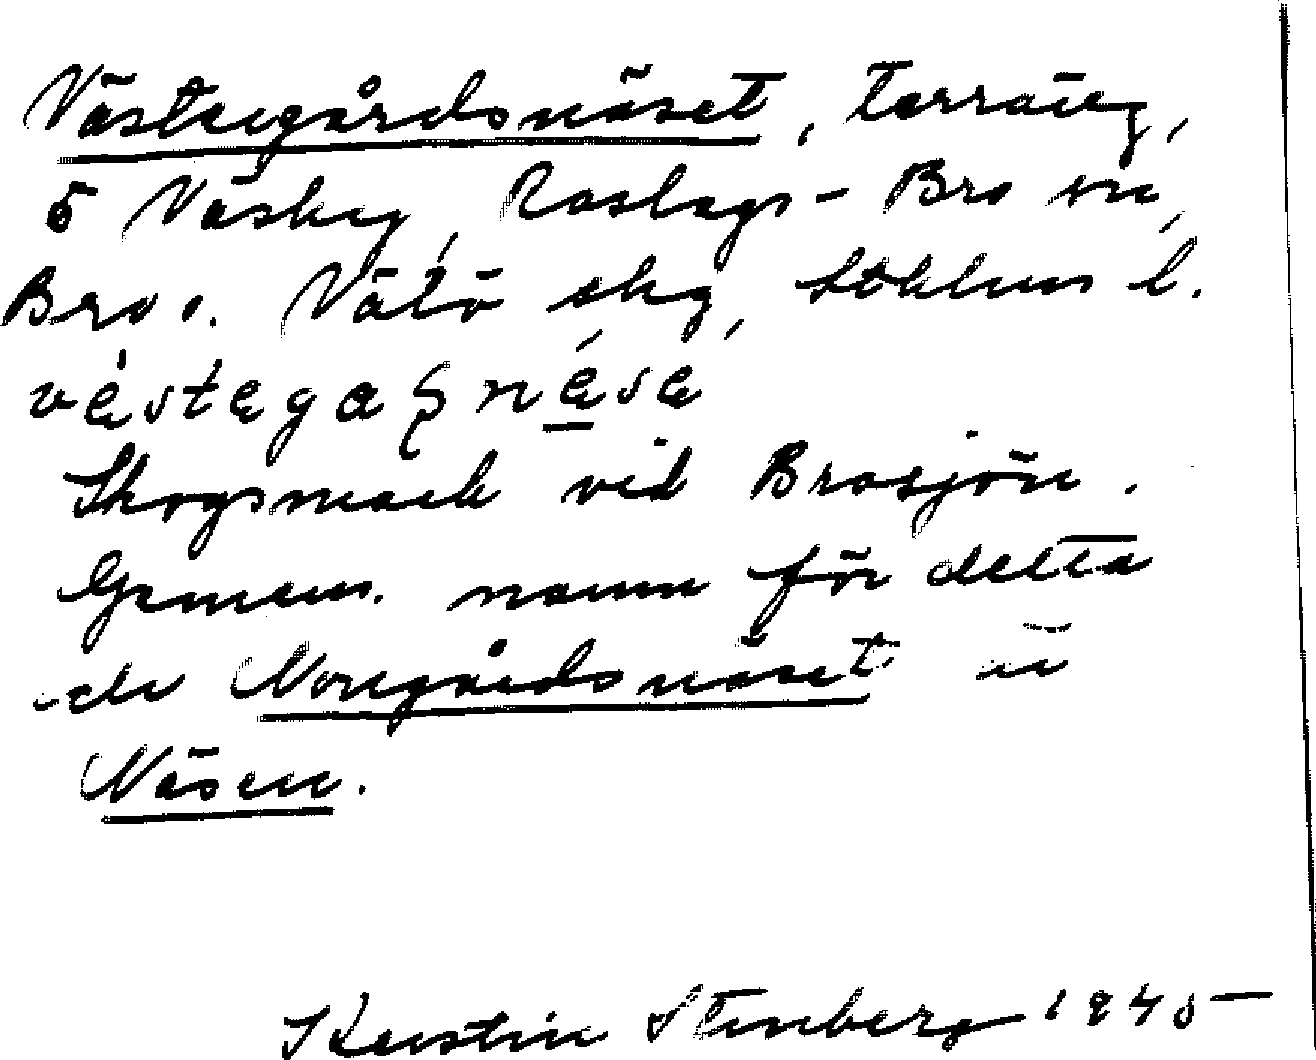 Västergårdsnäset, terräng,
5 Väsby, Roslags-Bro sn,
Bro o. Vätö skg, Sthlms l.
vèstegaʂnèsẹ
Skogsmark vid Brosjön.
Gemens. namn för detta
o. Norrgårdsnäset är
Näsen.
Kerstin Stenberg 1945